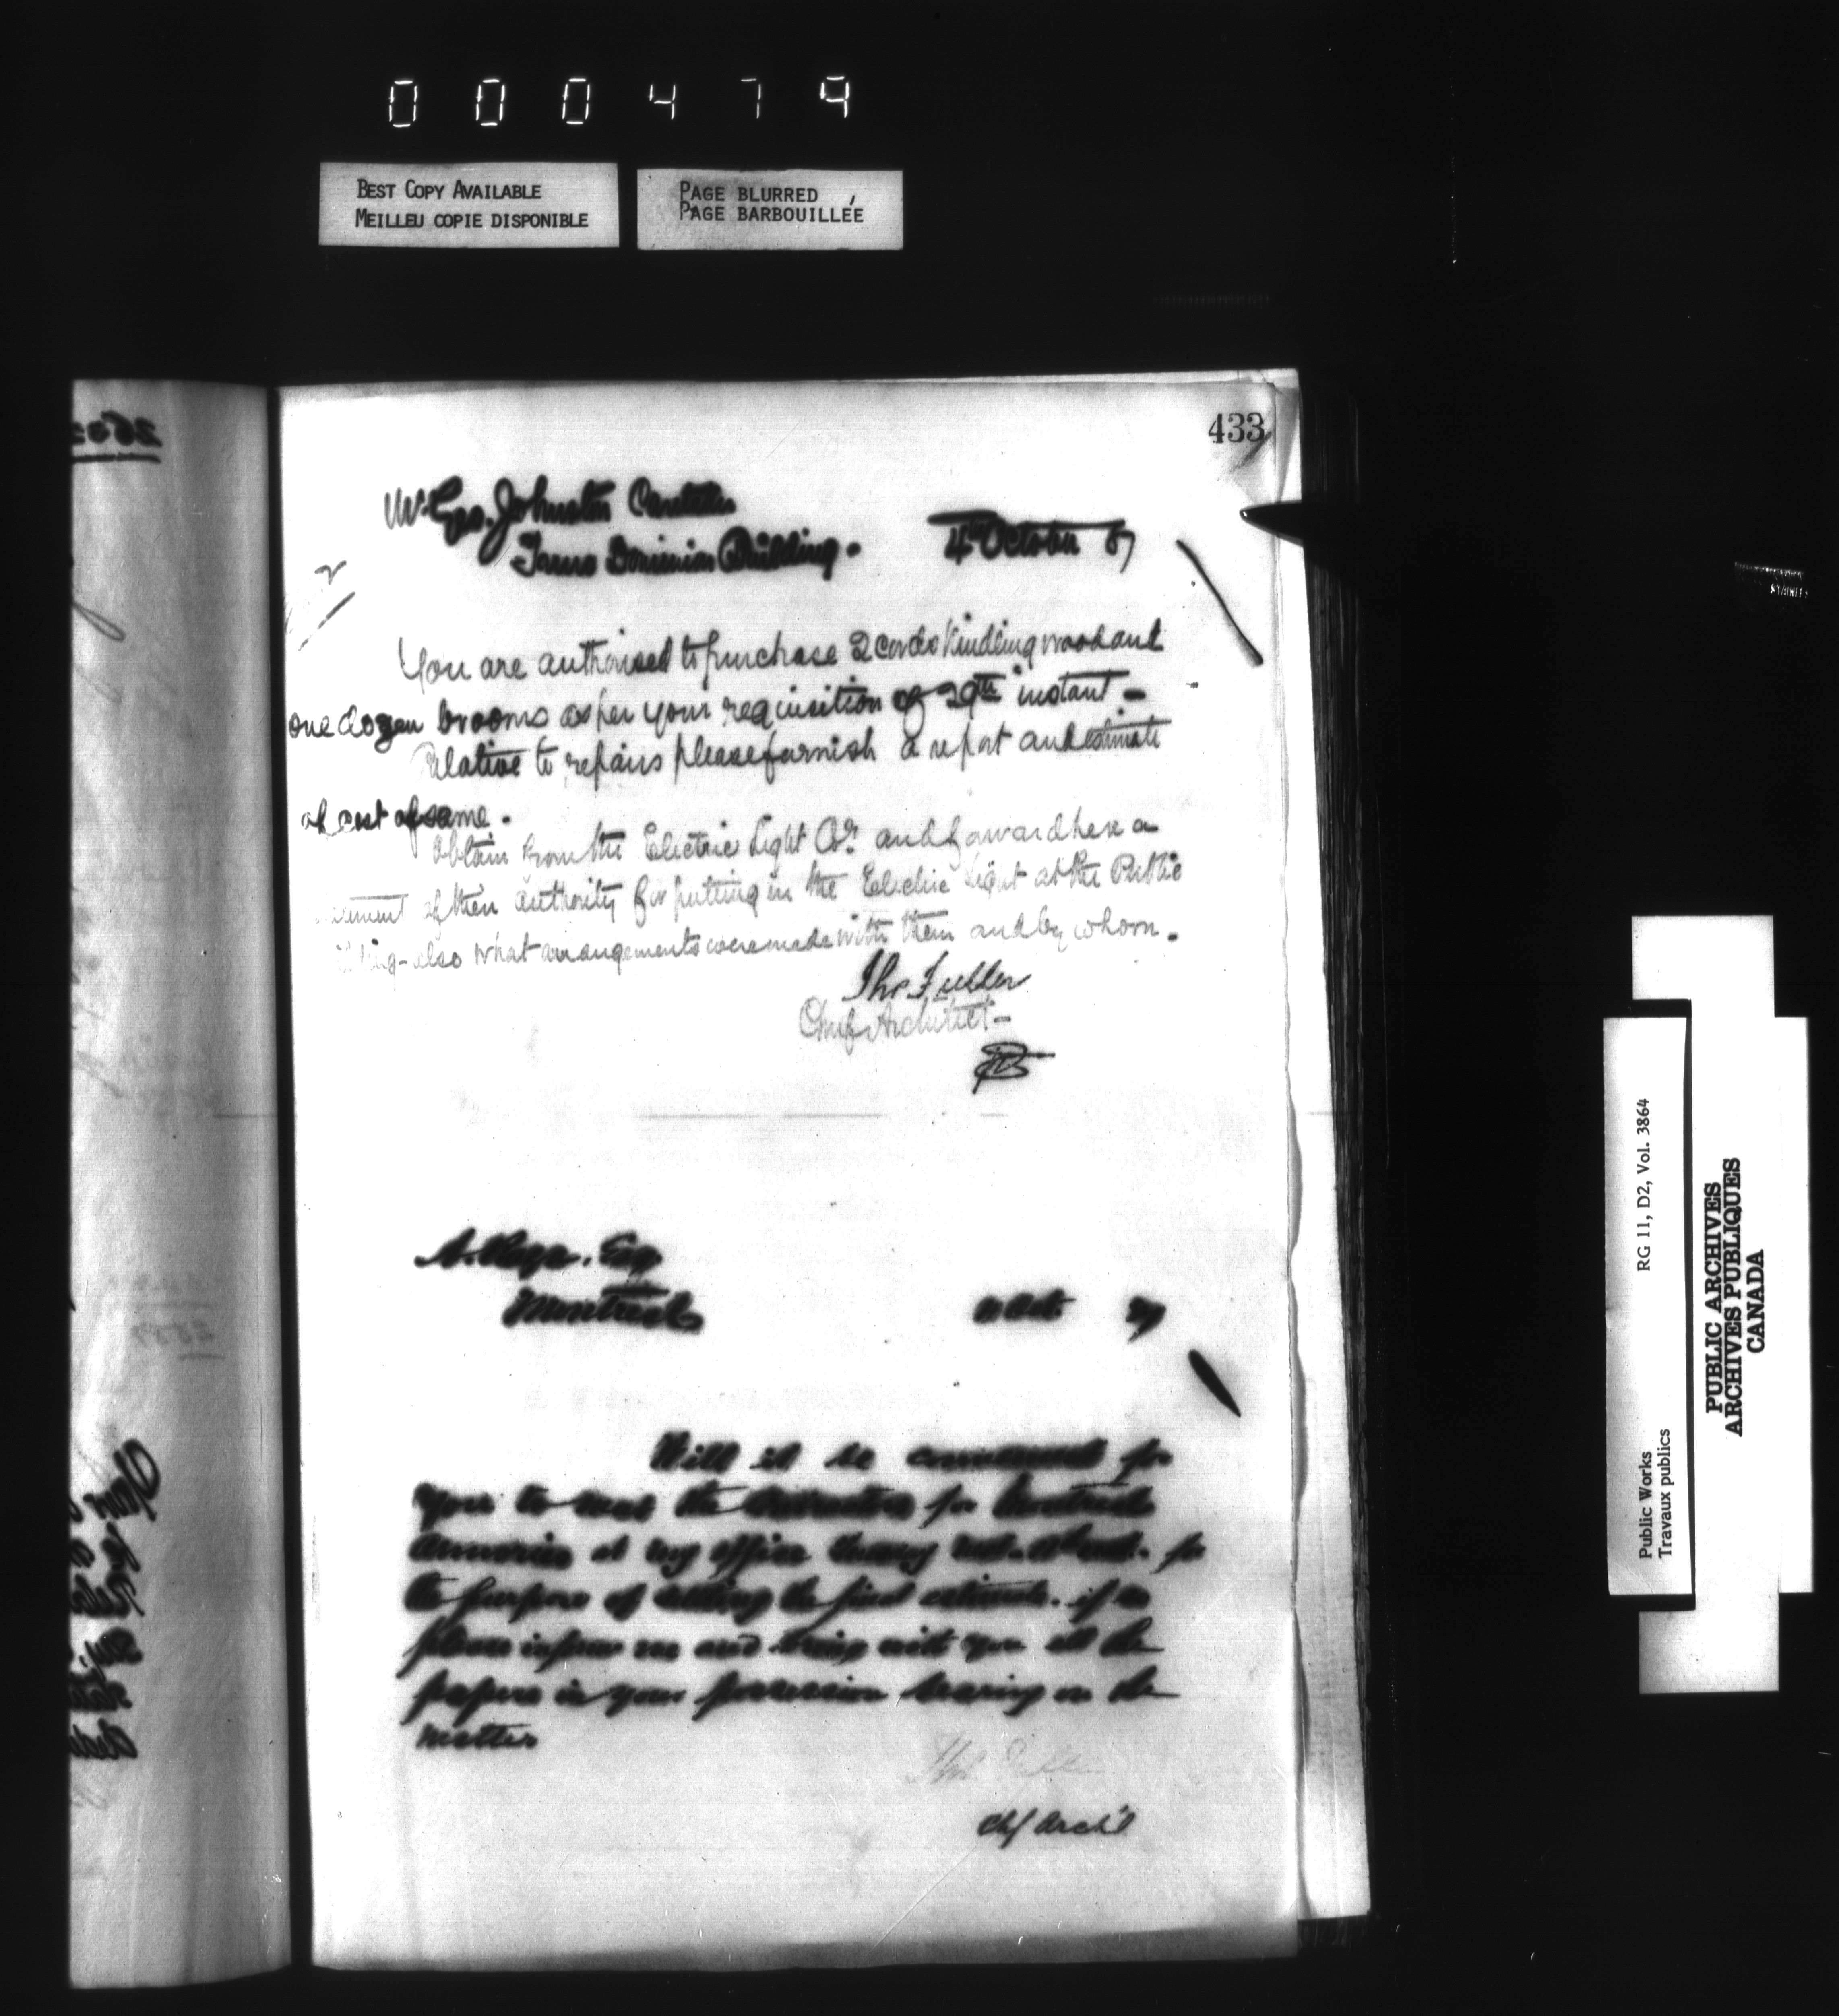 000479
BEST COPY AVAILABLE
MEILLEU COPIE DISPONIBLE
PAGE BLURRED
PAGE BARBOUILLÉE
433
Mr Geo. Johnston
Dominion Building.
4th October 87
You are authorised to purchase 2 cords Kindling wood and
one dozen brooms as per your requisition of 29th instant -
Relative to repairs please furnish a report and estimate
of cost of same.
Obtain from the Electric Light Co. and forward here a
of their authority for putting in the Electric Light at the Public
also what arrangements were made with them and by whom.
Thos Fuller
Chief Architect -
A. Esq
Montreal
Oct
Will it be convenient for
you to meet the for Montreal
at my office for
the purpose of settling the final estimate. if so
please inform me and bring with you all the
papers in your possession bearing on the
matter
Thos Fuller
Chf Archt
RG 11, D2, Vol. 3864
Public Works
Travaux publics
PUBLIC ARCHIVES
ARCHIVES PUBLIQUES
CANADA